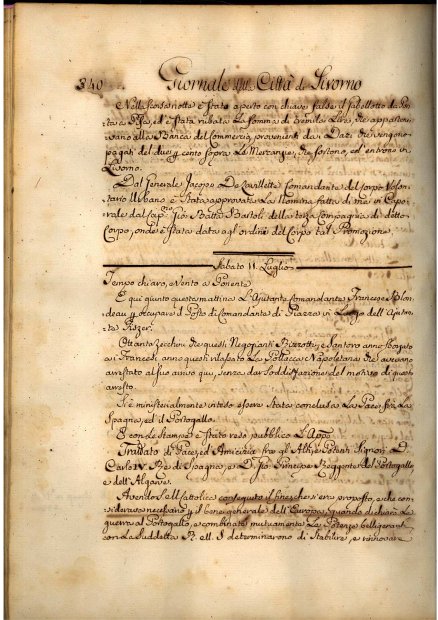 340 Giornale della Città di Livorno
Nella scorsa notte è stato aperto con chiave false il Casellotto da Por
ta a Pisa, ed è stata rubata la somma di tremila Lire, che apparte
nevano alla Banca del Commercio, provenienti da Dazi che vengono
pagati del due p cento sopra le Mercanzie, che sortono, ed entrono in
Livorno.
Dal Generale Jacopo De Comandante del Corpo Volon
tario Urbano è Stata approvata la Nomina fatta di me in Capo
rale dal Cap. Gio Batta Bartoli della terza Compagnia di detto
Corpo, onde è stata data agl'ordine del Corpo tal Promozione.
Sabato 11. Luglio
Tempo chiaro, Vento a Ponente
E qui giunto questa mattina l'Ajutante Comandante Francese
deau p occupare il Posto di Comandante di Piazza in Luogo dell'Ajutan
te
Ottanta Zecchini che questi Negozianti e Santoro anno
a i Francesi anno questi rilasciato la Pollacca Napoletana che avevano
arrestato al suo arrivo qui, senza dar soddisfazione del motivo di questo
arresto.
Si è ministerialmente inteso essere Stata conclusa la Pace fra la
Spagna, ed il Portogallo.
E con le Stampe è Stato reso pubblico l'App.
Trattato di Pace, ed Amicizia fra gli Altri e Potenti Signori D.
Carlo IV. Re di Spagna, e D. Gio. Principe Reggente del Portogallo
e dell'Algarve.
Avendo S. M. Cattolica conseguito il bene che si era proposto, e che con
siderava necessario p il bene generale dell'Europa, quando dichiarò la
guerra al Portogallo, e combinate mutuamente le Potenze belligeranti
con la suddetta R. M. S. determinarono di Stabilire, e rinnovare